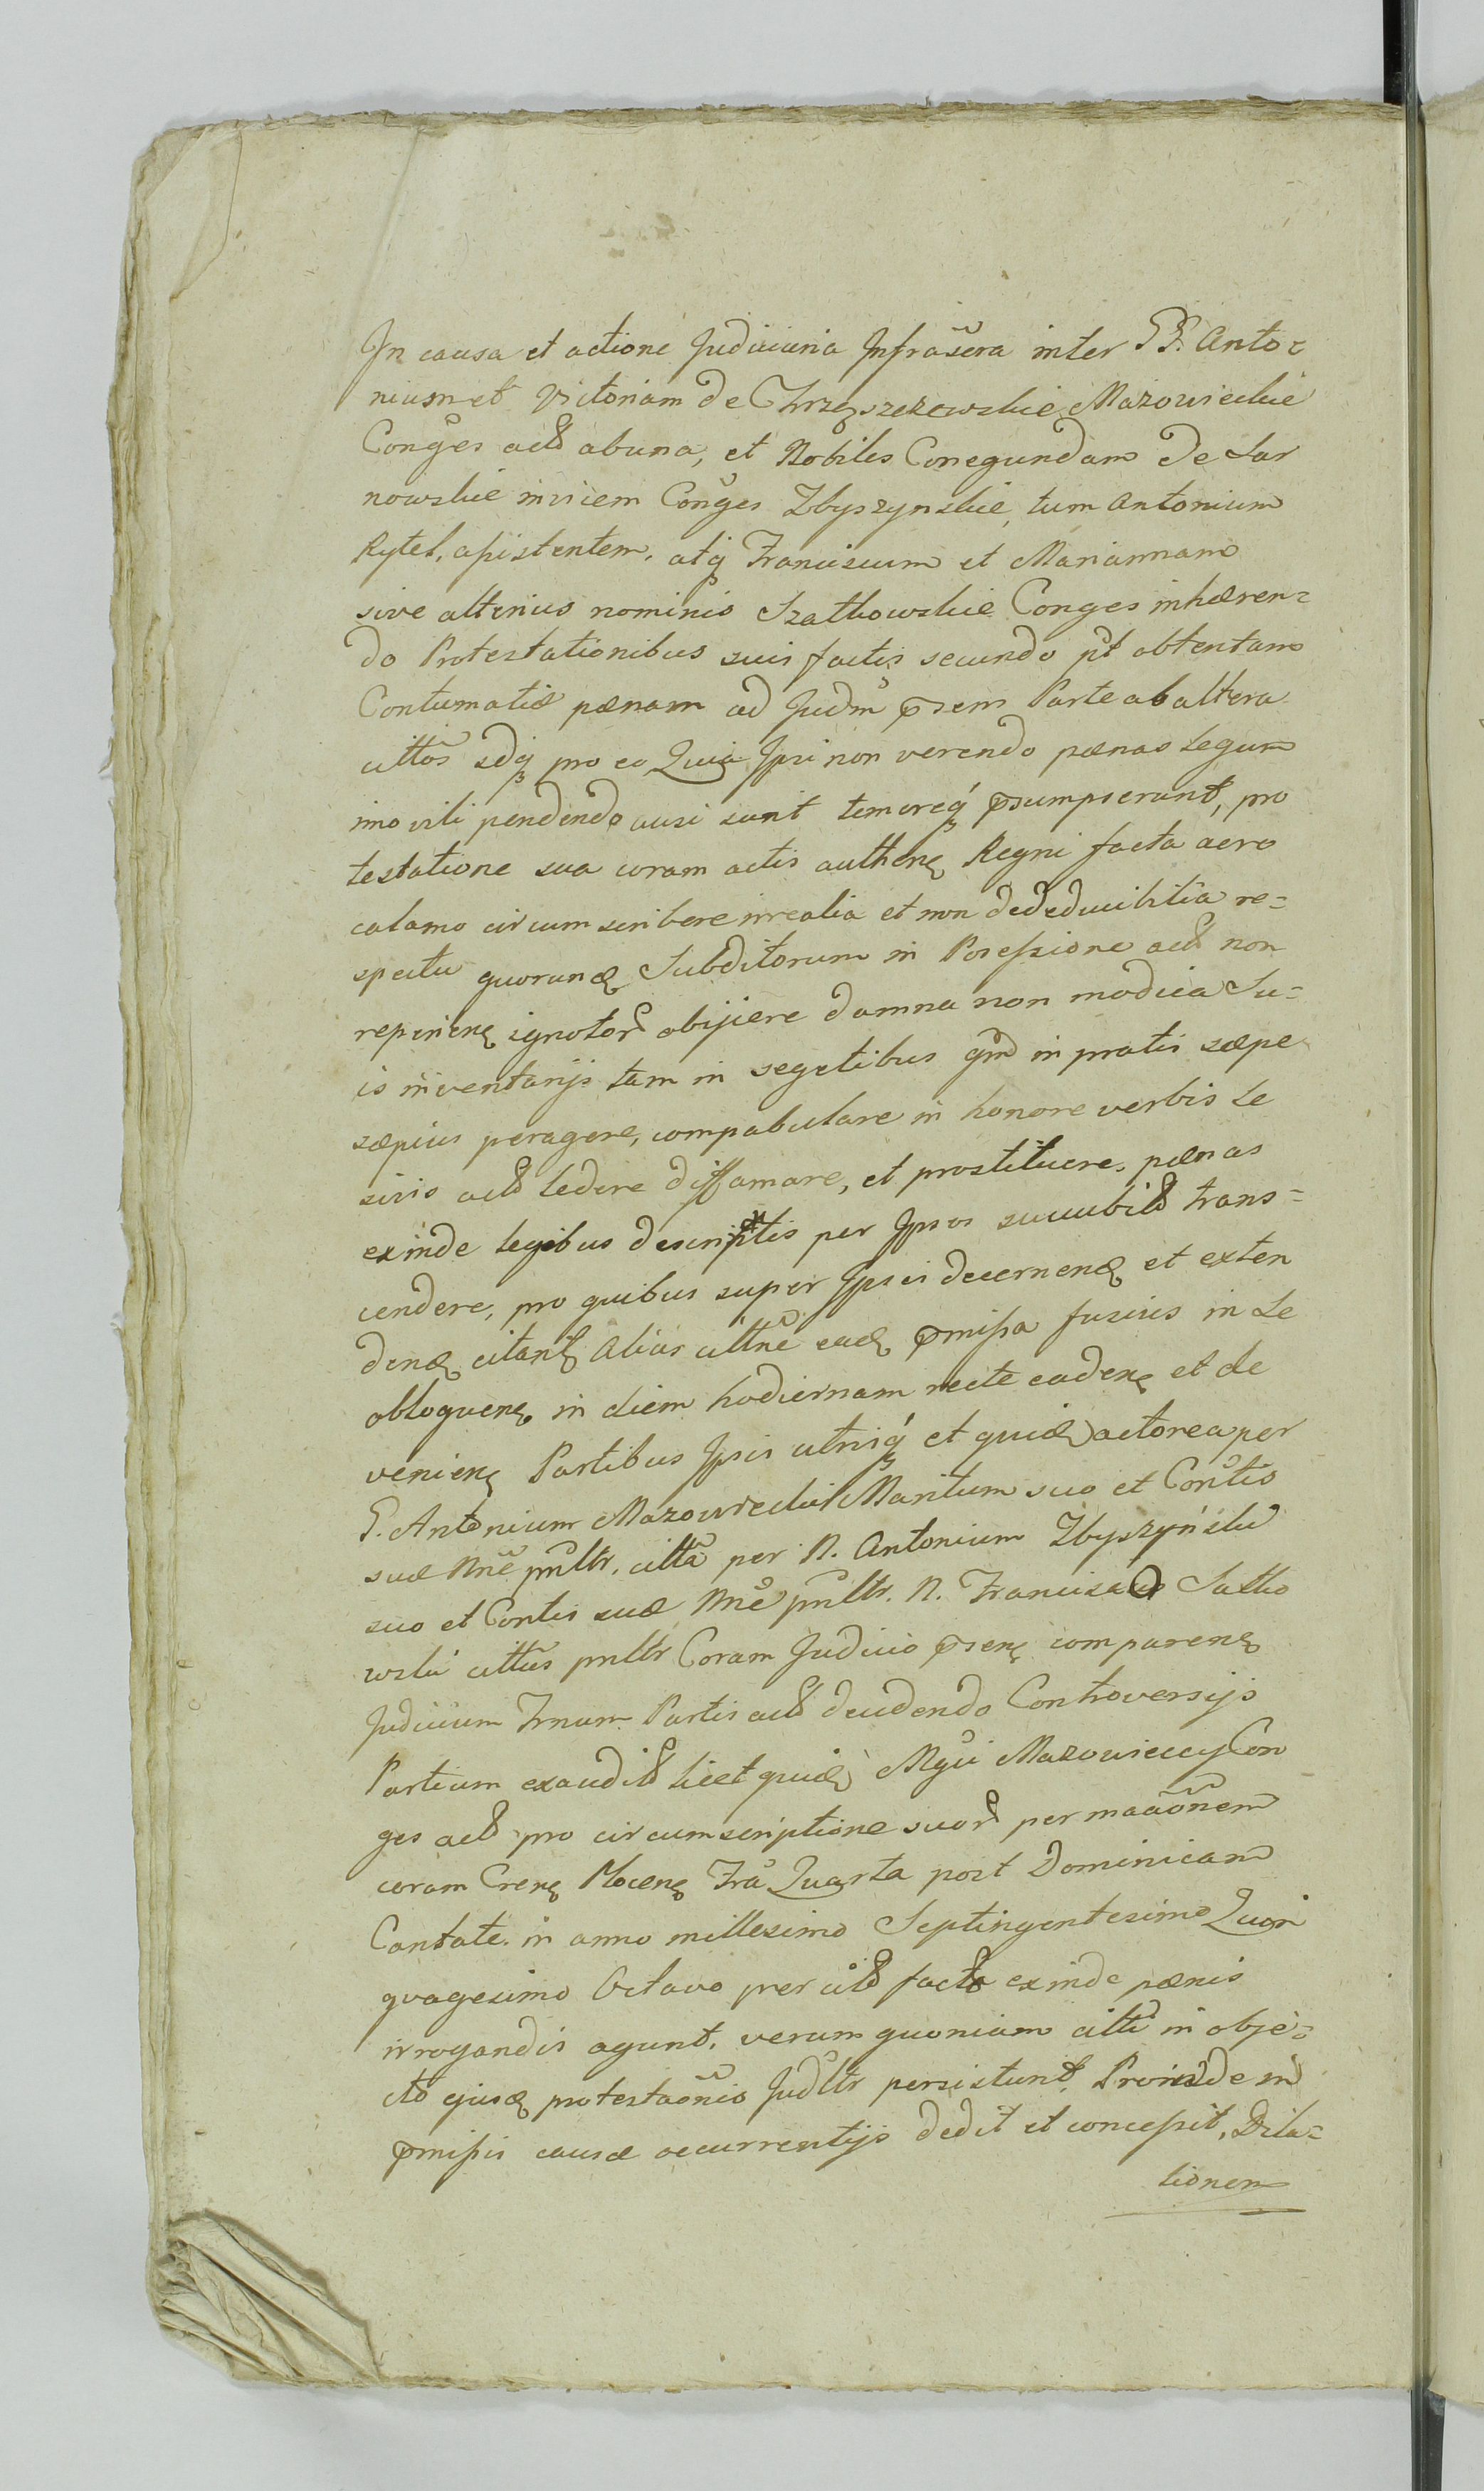 In causa et actione Judiciaria Infrãscra inter PP. Anto=
nium et Victoriam de Chrzęszczewskie Mazowieckie
Conges actõ abuna, et Nobiles Conegundam de Sar
nowskie invicem Conges Zbyszynskie, tum Antonium
Rytel, assistentem, atq Franciscum et Mariannam
sive alterius nominis Szatkowskie Conges inhæren=
do Protestationibus suis factis secundo pt obtentam
Contumatiæ pænam ad Judm pnsem Parte ab altera
cittõs sdq pro eo Quia Ipsi non verendo pænas Legum
imo vili pendendo ausi sunt temereq́ psumpserunt, pro
testatione sua coram actis authenę Regni facta aero
calamo circumscribere irrealia et non dededucibilia re=
spectu quorunḏ Subditorum in Possessione actõ non
reperienę ignotor obijicere damna non modica Su=
is inventarijs tam in segetibus qm in pratis sæpe
sæpius peragere, compabulare in honore verbis Le
sivis actõ ledere diffamare, et prostituere, pænas
exinde legibus descriptis per Ipsos succubitõ trans=
cendere, pro quibus super Ipsis decernenḏ et exten
denḏ citantę Alias cittne eadę pmissa fusius in se
obloquenę in diem hodiernam recte cadenę et de
venienę Partibus Ipsis utrisq́ et quiḏ actorea per
G. Antonium Mazowiecki Maritum suo et Contis
suæ Nne pnltr, citta per N. Antonium Zbyszyński
suo et Contis suæ Nne pnltr. N. Francisco Satko
wski cittus pnltr Coram Judicio psenę comparenę
Judicium Trnum Partis actõ deudendo Controversijs
Partium exauditõ licet quiḏ Mgci Mazowieccy Con
ges actõ pro circumscriptione suor per maaõnem
coram Crenę Nocenę Fra Quarta post Dominicam
Cantate in anno millesimo Septingentesimo Quin
quagesimo Octavo per citõ facta exinde pænis
irrogandis agunt, verum quoniam citti in obje=
cto ejusḏ protestaõnis Judltr persistunt. Proinde in
pmissis causæ occurrentijs dedit et concessit, Dila=
tionem